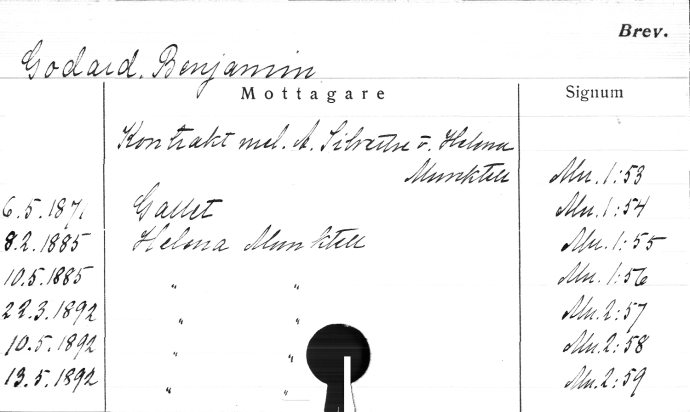 Brev.
Godard, Benjamin
Mottagare Signum
Kontrakt mel. A. Silvestre o. Helena
Munktell Mu. 1:53
6.5.187 Gallet Mu. 1:54
8.2.1885 Helena Munktell Mu. 1:55
10.5.1885 " " Mu. 1:56
22.3.1892 " " Mu. 2:57
10.5.1892 " " Mu. 2:58
13.5.1892 " " Mu. 2:59